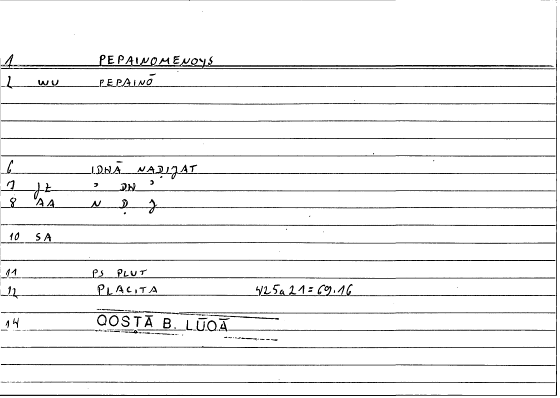 1 PEPAINOMENOYS
2 WU PEPAINŌ
6 IDHĀ NAḌIJAT
7 JZ " DH "
8 AA N Ḍ J
10 SA
11 PS PLUT
12 PLACITA 425a21=69.16
14 QOSTĀ B. LŪQĀ